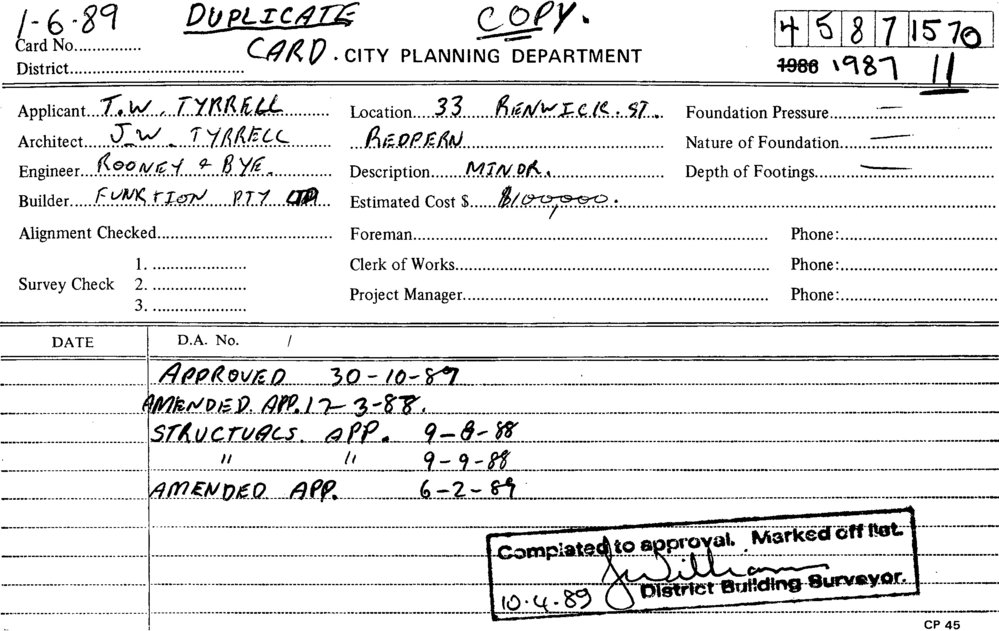 1-6-89 DUPLICATE COPY. 4 5 8 7 1570
Card No............... CARD. CITY PLANNING DEPARTMENT
District........................................ 1986 1987 11
Applicant...T.W. TYRRELL Location...33 RENWICK. ST. Foundation Pressure...—
Architect...J.W. TYRRELL REDFERN Nature of Foundation...—
Engineer...ROONEY & BYE. Description...MINOR. Depth of Footings...—
Builder...FUNKTION PTY LTD Estimated Cost $...$100,000.
Alignment Checked........................................ Foreman........................................ Phone:....................
1. ..................... Clerk of Works........................................ Phone:....................
Survey Check 2. .....................
Project Manager........................................ Phone:....................
3. .....................
DATE D.A. No. /
APPROVED 30-10-87
AMENDED. APP. 17-3-88.
STRUCTUALS. APP. 9-8-88
" " 9-9-88
AMENDED APP. 6-2-89
Completed to approval. Marked off list.
10.4.89 District Building Surveyor.
CP 45